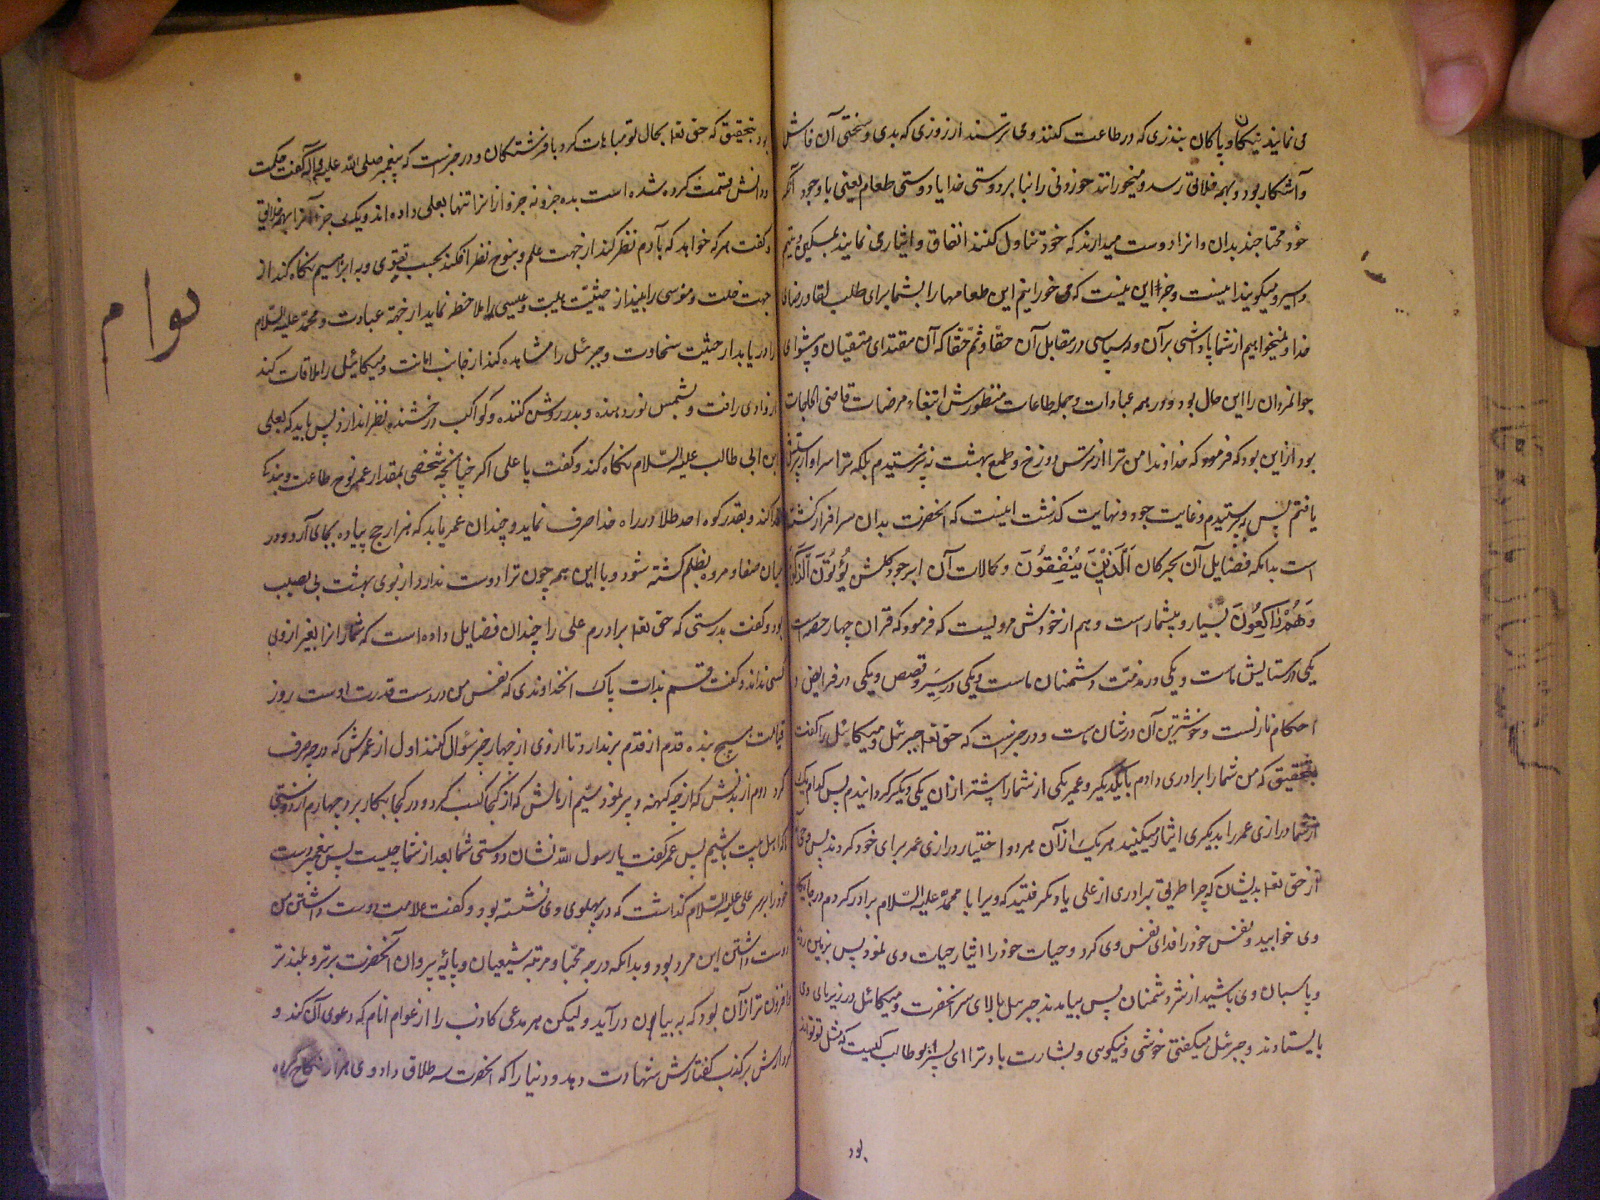 می نمایند نیکان و پاکان بنذری که در طاعت کنند و می ترسند از روزی که بدی و سختی آن فاش
و آشکار بود و بهمه خلائق رسد و میخورانند خوردنی را بنا بر دوستی خدا یا دوستی طعام یعنی با وجود آنکه
خود محتاجند بدان و انرا دوست میدارند که خود تناول کنند انفاق و ایثار می نمایند بمسکین و یتیم
و اسیر و میگویند اینست و جز این نیست که می خورانیم این طعامها را بشما برای طلب لقا و رضای
خدا و نمیخواهیم از شما پاداشی بر آن و نه سپاسی در مقابل آن حقا و ثم حقا که آن مقتدای متقیان و پیشوای
جوانمردان را این حال بود و در همه عبادات و جمله طاعات منظورش ابتغاء مرضات قاضی الحاجات
بود از این بود که فرمود که خداوندا من ترا از ترس دوزخ و طمع بهشت نه پرستیدم بلکه ترا سزاوار پرستش
یافتم پس پرستیدم و غایت جود و نهایت گذشت اینست که انحضرت بدان سرافراز گشته
است بدانکه فضایل آن بحر کان اَلَّذِیْنَ یُنْفِقُونَ و کمالات آن ابر جود کلش یُؤتُونَ الزَّکوةَ
وَهُمْ رَاکِعُونَ بسیار و بیشمار است و هم از خودش مرویست که فرمود که قران چهار حصه است
یکی در ستایش ماست و یکی در مذمت دشمنان ماست و یکی در سِیَر و قصص و یکی در فرایض و
احکام نازلست و خوشترین آن در شان ماست و در خبر است که حق تعا جبرئل و میکائل را گفت
بتحقیق که من شما را برادری دادم با یکدیگر و عمر یکی از شما را بیشتر از ان یکی دیگر گردانیدم پس کدام یک
از شما درازی عمر را بدیگری ایثار میکنید هر یک از آن هر دو اختیار درازی عمر برای خود کردند پس وحی
از حق تعا بدیشان که چرا طریق برادری از علی یاد نگرفتید که ویرا با محمد علیه السّلام برادر کردم در جایگاه
وی خوابید و نفس خود را فدای نفس وی کرد و حیات خود را ایثار حیات وی نمود پس بزمین روید
و پاسبان وی باشید از شر دشمنان پس بیامدند جبرئل بالای سر انحضرت و میکائل در زیر پای وی
بایستادند و جبرئل میگفت خوشی و نیکوئی و بشارت باد ترا ای پسر ابو طالب کیست که مثل تو تواند
بود
بود بتحقیق که حق تعا بحال تو مباهات کرد با فرشتگان و در خبر است که پیغمبر صلی الله علیه و آله گفت حکمت
و دانش قسمت کرده شده است بده جزو نه جزو از انرا تنها بعلی داده اند و یک جزو آنرا بهمه خلائق
و گفت هر که خواهد که بآدم نظر کند از جهت علم و بنوح نظر افکند بحسب تقوی و به ابراهیم نگاه کند از
جهت خلت و موسی را بیند از حیثیّت هیبت و عیسی را ملاحظه نماید از جهة عبادت و محمد علیه السّلام
را دریابد از حیثیت سخاوت و جبرئل را مشاهده کند از جانب امانت و میکائیل را ملاقات کند
از وادی رافت و بشمس نور دهنده و بدر روشن کننده و کواکب درخشنده نظر اندازد پس باید که بعلی
ابن ابی طالب علیه السّلام نگاه کند و گفت یا علی اکر چنانچه شخصی بمقدار عمر نوح طاعت و بندگی
خدا کند و بقدر کوه احد طلا در راه خدا صرف نماید و چندان عمر یابد که هزار حج پیاده بجای آرد و در
میان صفا و مروه بظلم کشته شود و با این همه چون ترا دوست ندارد از بوی بهشت بی نصیب
بود و گفت بدرستی که حق تعا برادرم علی را چندان فضایل داده است که شمار انرا بغیر از وی
کسی نداند و گفت قسم بذات پاک انخداوندی که نفس من در دست قدرت اوست روز
قیامت هیچ بنده قدم از قدم برندارد تا از وی از چهار چیز سؤال کنند اول از عمرش که در چه صرف
کرد دوم از بدنش که از چه کهنه و پیر نمود سیّم از مالش که از کجا کسب کرد و در کجا بکار برد چهارم از دوستی
اهل بیت باشیم پس عمر گفت یا رسول الله نشان دوستی شما بعد از شما چیست پس پیغمبر دست
خود را بر سر علی علیه السّلام گذاشت که در پهلوی وی نشسته بود و گفت علامت دوست داشتن من
دوست داشتن این مرد بود و بدانکه درجه محبّان و مرتبه شیعیان و پایه پیروان آنحضرت برتر و بلندتر
و افزون تر از آن بود که به بیان درآید و لیکن هر مدعی کاذب را از عوام انام که دعوی آن کند و
کردارش بر کذب گفتارش شهادت دهد و دنیا را که انحضرت سه طلاق داد وی هزار نکاح کرده